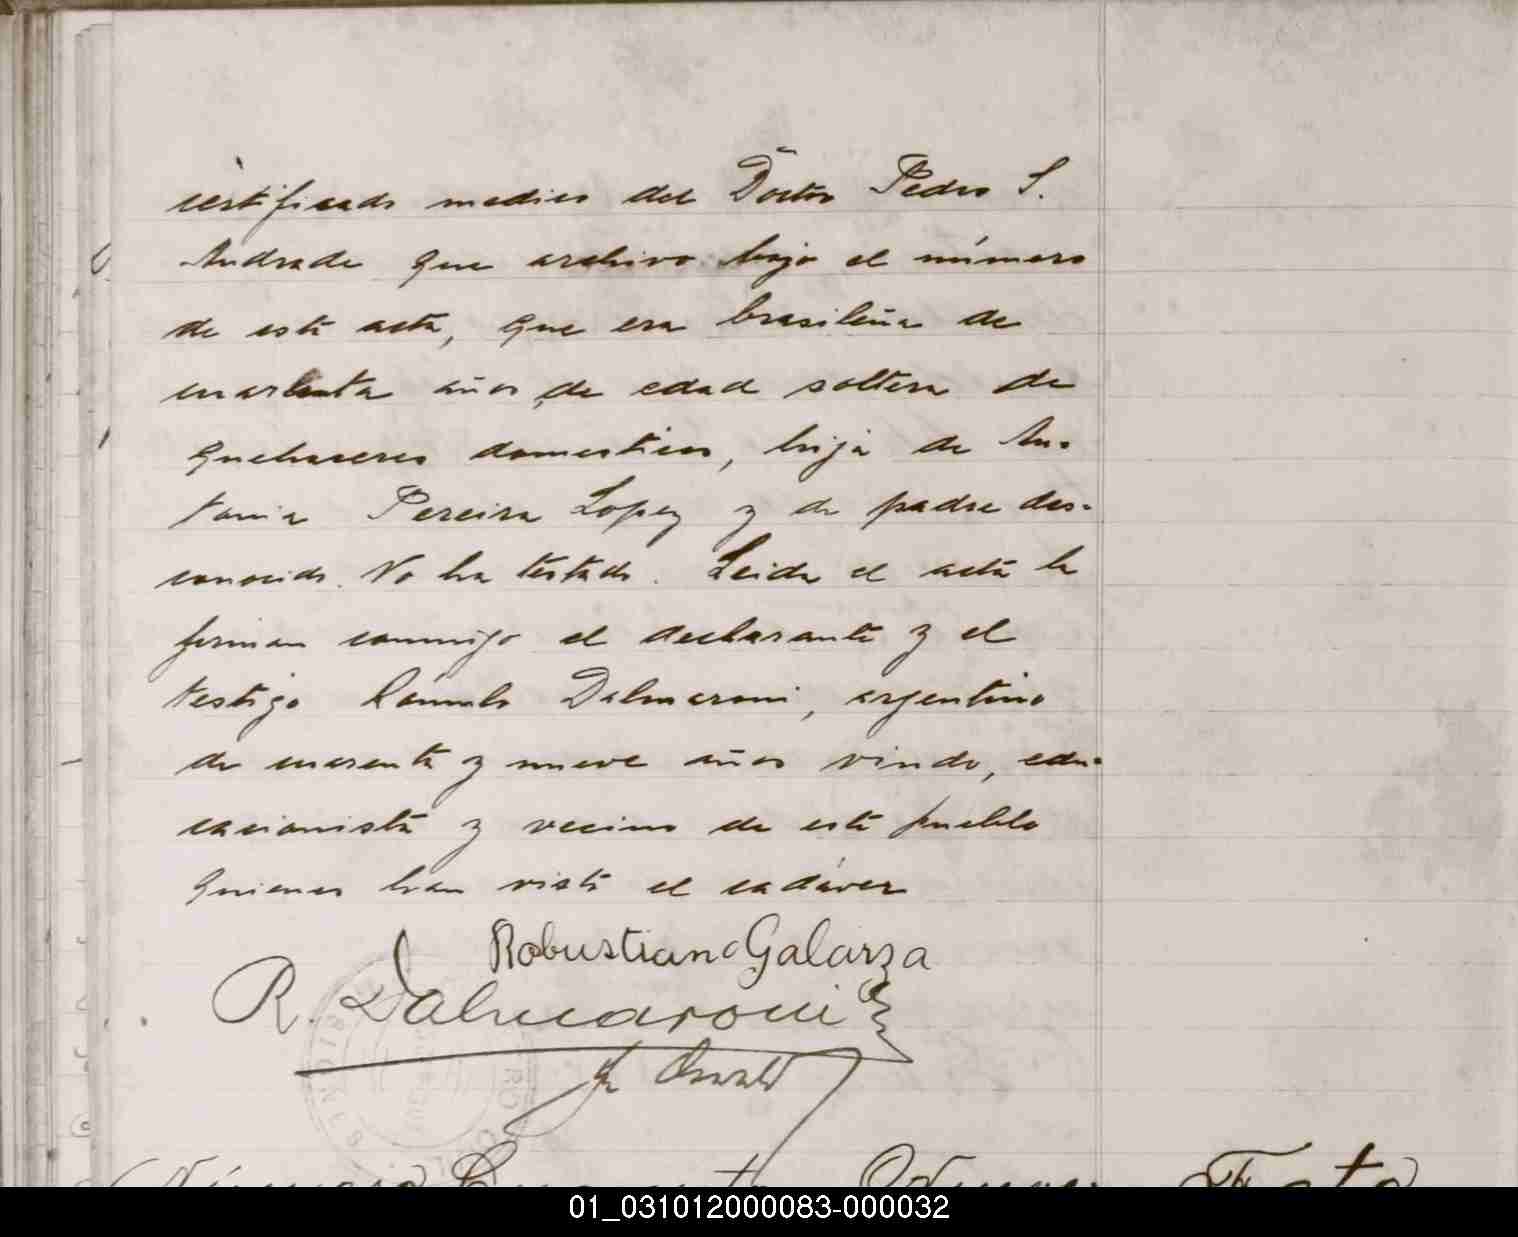 certificado medico del Doctor Pedro S.
Andrade que archivo bajo el número
de esta acta, que era brasileña de
cuarenta años de edad soltera de
quehaceres domesticos, hija de An-
tonia Pereira Lopez y de padre des-
conocido. No ha testado. Leida el acta la
firman conmigo el declarante y el
testigo Rómulo Dalmaroni, argentino
de cuarenta y nueve años viudo, edu-
cacionista y vecino de este pueblo
quienes han visto el cadáver
Robustiano Galarza
R. Dalmaroni
Oswald
Número Cuarenta
01_031012000083-000032